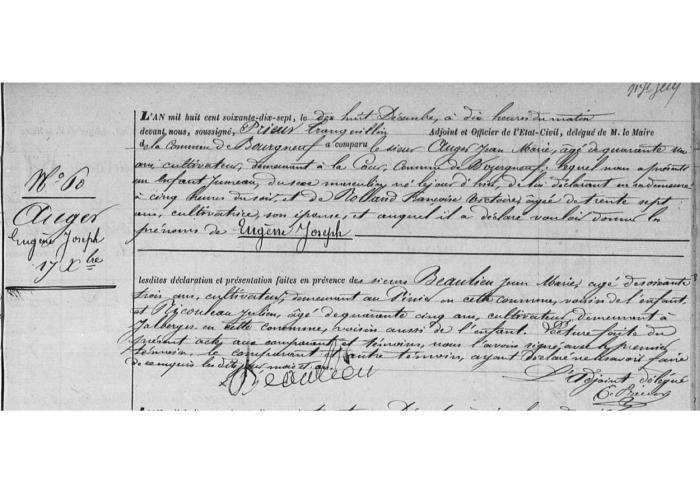 L'AN mil huit cent soixante-dix-sept, le dix huit Décembre, à dix heures du matin
devant nous, soussigné, Prieur tranquillin Adjoint et Officier de l'Etat-Civil, délégué de M. le Maire
de la Commune de Bourgneuf a comparu le sieur Auger Jean Marie, agé de quarante un
ans, cultivateur, demeurant à la Cour, Commune de Bourgneuf, lequel nous a présenté
un Enfant Jumeau, du sexe masculin né le jour d'hier, de lui déclarant en sa demeure
à cinq heures du soir, et de Rolland Françoise Victoire, âgée de trente sept
ans, cultivatrice, son épouse, et auquel il a déclaré vouloir donner les
prénoms de Eugène Joseph
N° 60
Auger
Eugène Joseph
17 Xbre
lesdites déclaration et présentation faites en présence des sieurs Beaulieu Jean Marie, agé de soixante
trois ans, cultivateur, demeurant au en cette commune, voisin de l'enfant,
et Julien, âgé de quarante cinq ans, cultivateur demeurant à
en cette commune, voisin aussi de l'enfant. Lecture faite du
présent acte aux comparant et témoins, nous l'avons signé, avec le premier
témoin, le comparant et l'autre témoin, ayant déclaré ne savoir faire
de ce enquis
Beaulieu
L'Adjoint délégué